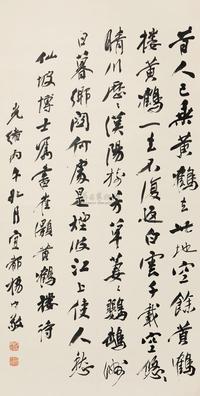 昔人已乘黄鶴去此地空餘黄鶴
樓黄鶴一去不復返白雲千載空悠
晴川歷歷漢陽樹芳草萋萋鸚鵡洲
日暮鄉關何處是煙波江上使人愁
仙坡博士屬書崔顥黄鶴樓詩
光緒丙午北月宜都楊守敬